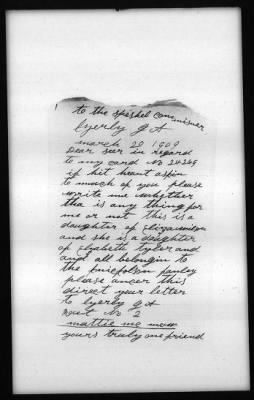 to the speshel commisner
lyerby g A
march 29 1909
Dear seer in regard
to my card No 24249
if hit heant aspin
to much of you please
write me whether
the is any thing for
me or not this is a
daughter of
and she is a daughter
of Elzabeth Tyler and
and all belongin to
the famley
please ancer this
direct your letter
to lyerby g A
rout No 2
mattie mc
yours truly one friend